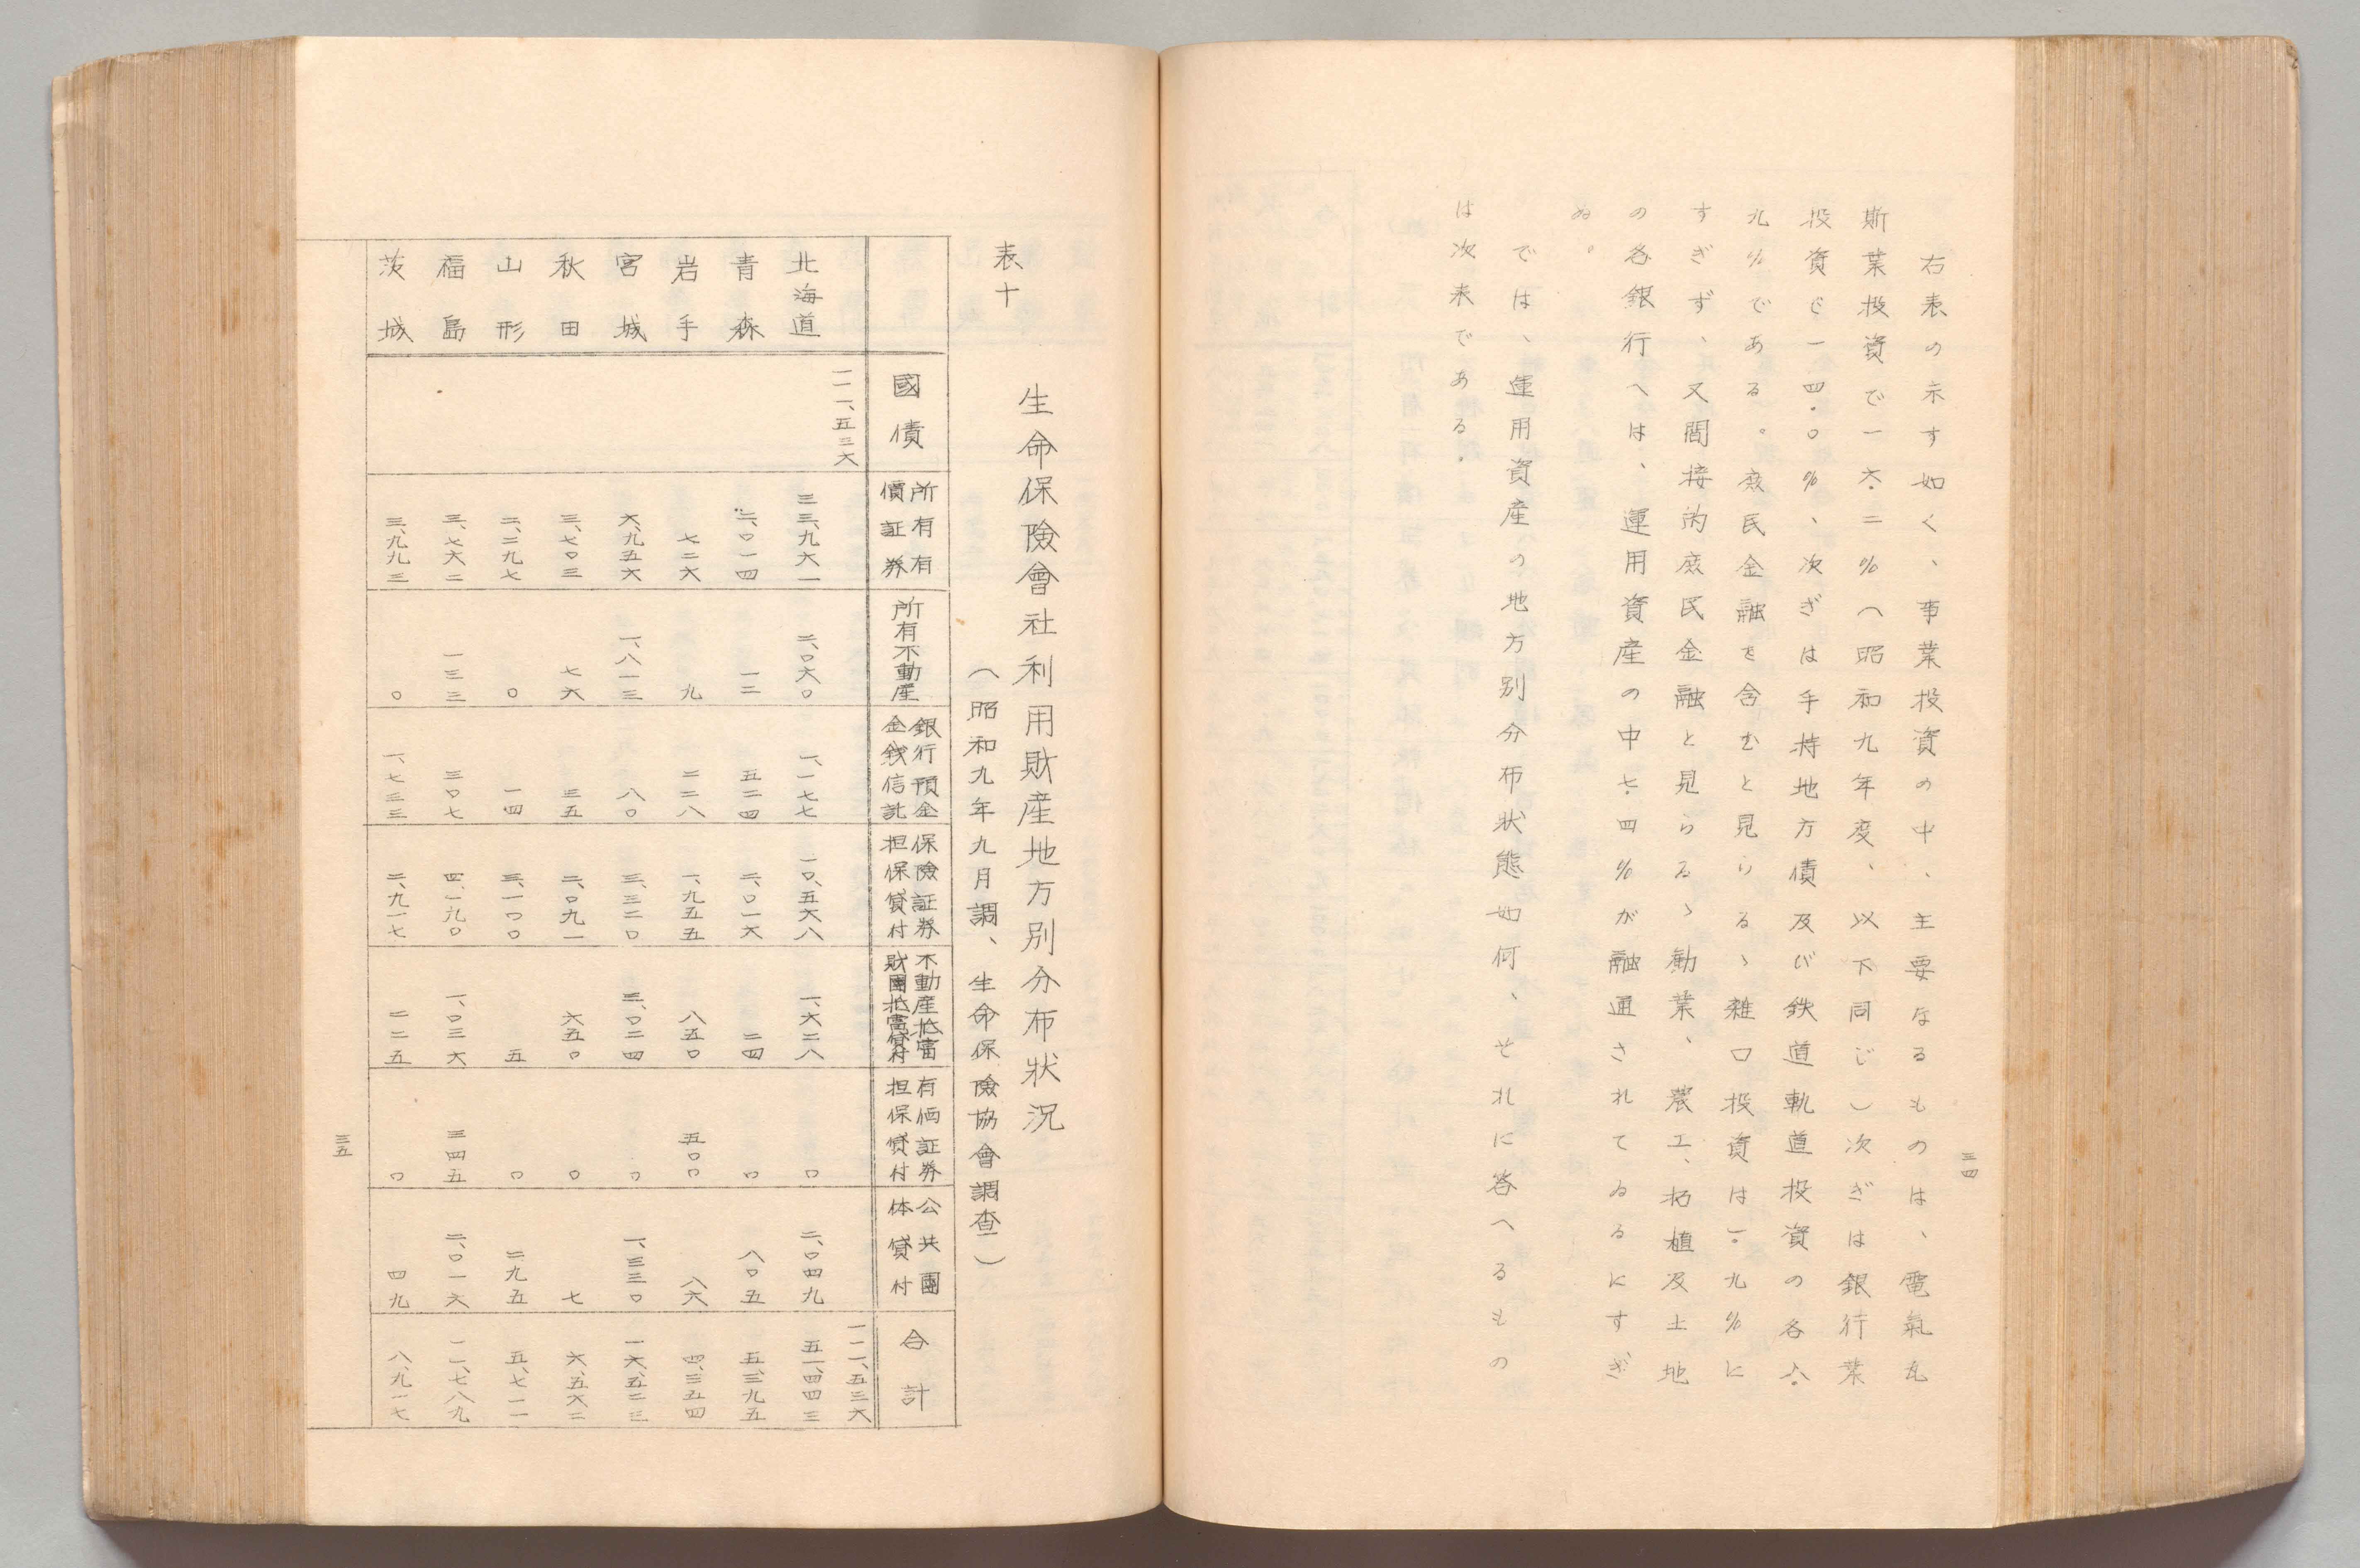 三四
右表の示す如く、事業投資の中、主要なるものは、電氣瓦
斯業投資で一六・二％（昭和九年度、以下同じ）次ぎは銀行業
投資で一四・〇％、次ぎは手持地方債及び鉄道軌道投資の各八・
九％である。庶民金融を含むと見らるゝ雑口投資は一・九％に
すぎず、又間接的庶民金融と見らるゝ勧業、農工、拓植及土地
の各銀行へは、運用資産の中七・四％が融通されてゐるにすぎ
ぬ。
では、運用資産の地方別分布状態如何、それに答へるもの
は次表である。
表十
生命保險會社利用財産地方別分布狀況
（昭和九年九月調、生命保險協會調査）
國債 所有有價証券 所有不動産 銀行預金金銭信託 保險証券担保貸付 不動産抵當財團抵當貸付 有価証券担保貸付 公共團体貸付 合計
一一一、五三六 一一一、五三六
北海道 三三、九六一 二、〇六〇 一、一七七 一〇、五六八 一、六二八 〇 二、〇四九 五一、四四三
青森 二、〇一四 一二 五二四 二、〇一六 二四 〇 八〇五 五、三九五
岩手 七二六 九 二二八 一、九五五 八五〇 五〇〇 八六 四、三五四
宮城 六、九五六 一、八一三 八〇 三、三二〇 三、〇二四 〇 一、三三〇 一六、五二三
秋田 三、七〇三 七六 三五 二、〇九一 六五〇 〇 七 六、五六二
山形 二、二九七 〇 一四 三、一〇〇 五 〇 二九五 五、七一一
福島 三、七六二 一三三 三〇七 四、一九〇 一、〇三六 三四五 二、〇一六 一一、七八九
茨城 三、九九三 〇 一、七三三 二、九一七 二二五 〇 四九 八、九一七
三五